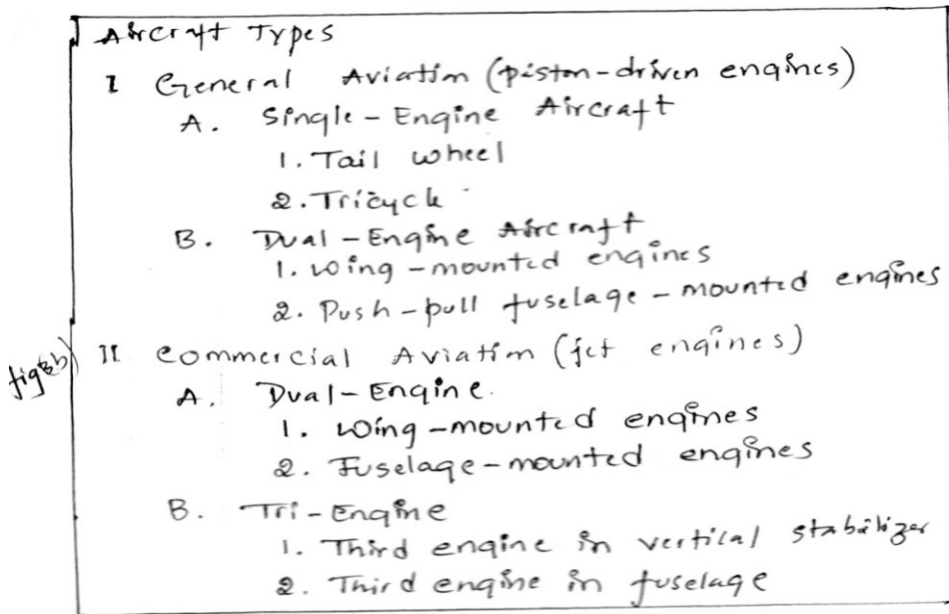 Aircraft Types
I General Aviation (piston-driven engines)
A. Single-Engine Aircraft
1. Tail wheel
2. Tricycle
B. Dual-Engine Aircraft
1. Wing-mounted engines
2. Push-pull fuselage-mounted engines
fig 3b) II Commercial Aviation (jet engines)
A. Dual-Engine.
1. Wing-mounted engines
2. Fuselage-mounted engines
B. Tri-Engine
1. Third engine in vertical stabilizer
2. Third engine in fuselage